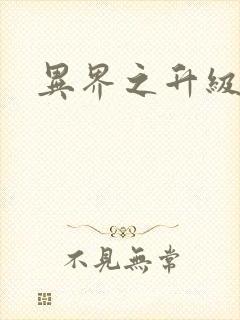 異界之升級
不見無常